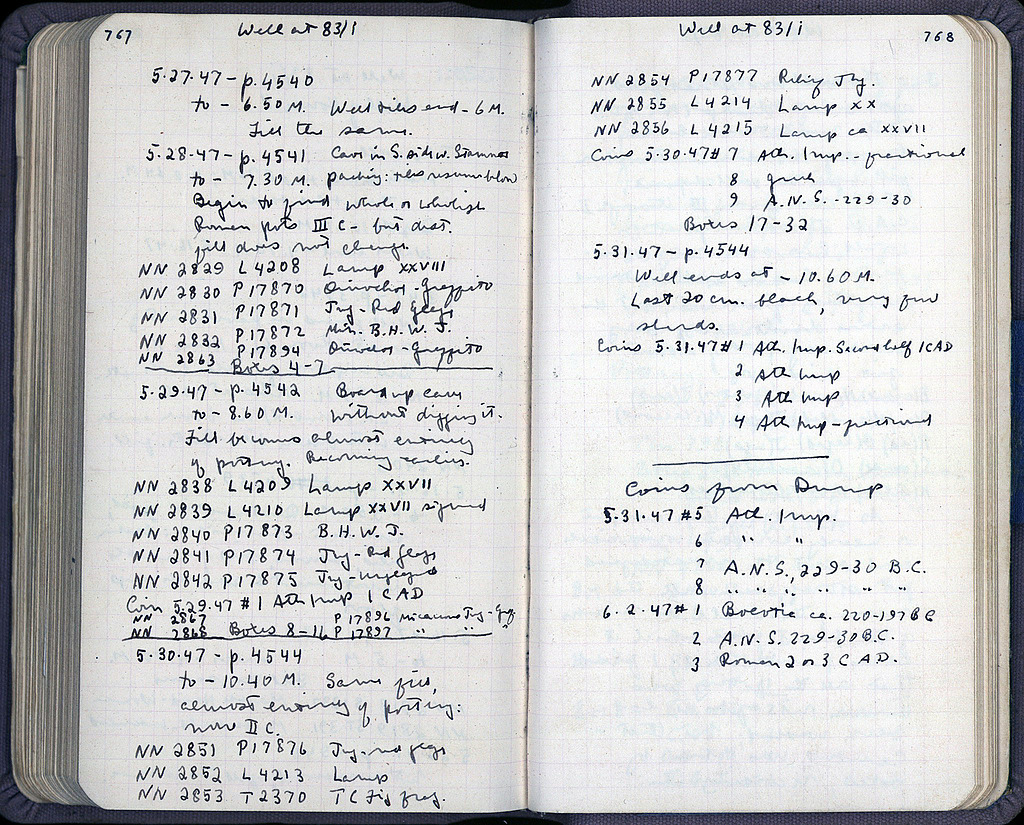 767
Well at 83/1
5.27.47 - p.4540
to - 6.50 M. Well tiles end - 6 M.
Fill the same.
5.28.47 - p.4541 Cave in S. side w. Stamnos
to - 7.30 M. packing: tiles resume below
Begin to find whole or wholish
Roman pots III C - but dist.
fill does not change.
NN 2829 L 4208 Lamp XXVIII
NN 2830 P 17870 Oinochoe - Graffito
NN 2831 P 17871 Jug - Red Glaze
NN 2832 P 17872 Min. B.H.W.J.
NN 2863 P 17894 Oinochoe - Graffito
Botes 4-7
5.29.47 - p. 4542 Board up cave
to - 8.60 M. without digging it.
Fill becomes almost entirely
of pottery. Becoming earlier.
NN 2838 L 4209 Lamp XXVII
NN 2839 L 4210 Lamp XXVII signed
NN 2840 P17873 B.H.W.J.
NN 2841 P 17874 Jug - Red glaze
NN 2842 P17875 Jug - unglazed
Coin 5.29.47 #1 Ath Imp 1 C AD
NN 2867 P 17896 micaceous Jug - Gray
NN 2868 Botes 8-16 P 17897 " " "
5.30.47 - p. 4544
to - 10.40 M. Same fill,
almost entirely of pottery:
now II C.
NN 2851 P17876 Jug - red glaze
NN 2852 L 4213 Lamp
NN 2853 T 2370 TC Fig frag.
Well at 83/1
768
NN 2854 P17877 Relief Jug.
NN 2855 L 4214 Lamp XX
NN 2856 L 4215 Lamp ca XXVII
Coins 5.30.47 # 7 Ath. Imp. - fractional
8 Greek
9 A.N.S. - 229-30
Botes 17-32
5.31.47 - p. 4544
Well ends at - 10.60 M.
Last 20 cm. black, very few
sherds.
Coins 5.31.47 # 1 Ath. Imp. Second half 1 C AD
2 Ath Imp
3 Ath Imp
4 Ath Imp - fractional
Coins from Dump
5.31.47 #5 Ath. Imp.
6 " "
7 A.N.S., 229-30 B.C.
8 " " " " "
6.2.47 #1 Boeotia ca. 220-197 BC
2 A.N.S. 229-30 B.C.
3 Roman 2 or 3 C A.D.